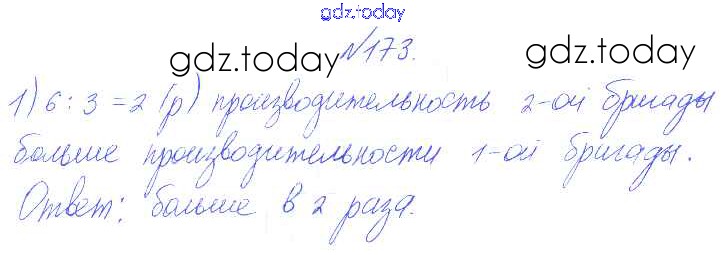 gdz.today
gdz.today №173. gdz.today
1) 6 : 3 = 2 (р) производительность 2-ой бригады
больше производительности 1-ой бригады.
Ответ: больше в 2 раза.